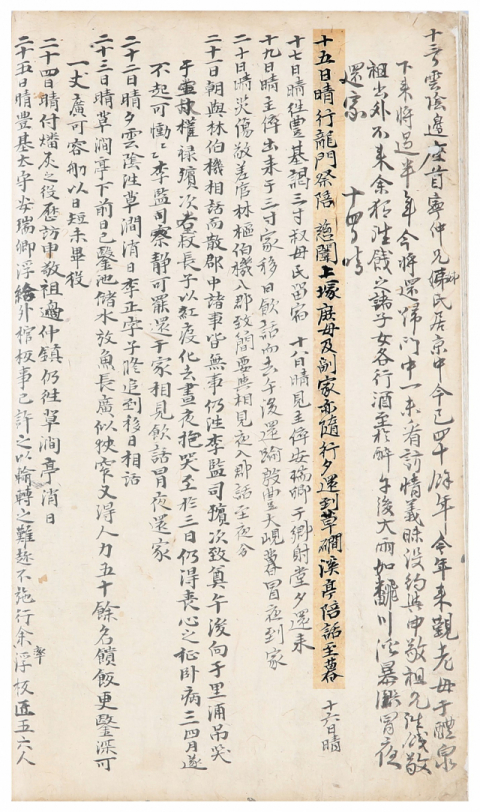 十三日雲陰邉座首寧仲兄婦氏居京中今已四十餘年今年来觀老母于醴泉
下来将過半年今将還歸门中一未着訪情義昧没約與申敬祖兄往餞敬
祖出外不来余獨往餞之諸子女各行酒至於醉午後大雨如川渠暴漲冒夜
還家 十四日晴
十五日晴行龍門祭陪慈闈上塚庶母及副家亦隨行夕還到草磵溪亭陪話至暮 十六日晴
十七日晴往豊基謁三寸叔母氏留宿 十八日晴見主倅安瑞卿于鄉射堂夕還来
十九日晴主倅出来于三寸家移日飲話而去午後還踰敬豊大峴暮冒夜到家
二十日晴炎傷敬差官林樞伯機入郡致簡要與相見夜入郡話至夜分
二十一日朝與林伯機相話而散郡中諸事皆無事仍往李監司殯次致奠午後向于里浦吊哭
于權禄殯次君叔長子以紅疫化去晝夜抱哭至於三日仍得喪心之症卧病三四月遂
不起可慟〻〻李監司察静可罷還于家相見飲話冒夜還家
二十二日晴夕雲陰往草澗消日李正字子膺追到移日相話
二十三日晴草澗亭下前日已鑿池儲水放魚長廣似狹窄又得人力五十餘名饋飯更鑿深可
一丈廣可容舠以日短未畢役
二十四日晴付燔灰之役歷訪申敬祖邉仲鎮仍往草澗亭消日
二十五日晴豊基太守安瑞卿浮給外棺板事已許之以輸轉之難趂不施行余率浮板匠五六人